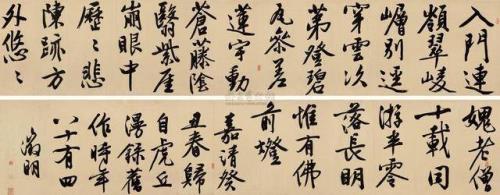 入門連
嶺翠崚
嶒別逕
穿雲次
第登碧
瓦參差
蓮宇動
蒼藤陰
翳紫厓
崩眼中
歷〻悲
陳跡方
外悠〻
愧老僧
十載同
游半零
落長明
惟有佛
前燈
嘉靖癸
丑春歸
自虎丘
漫錄舊
作時年
八十有四
徵明